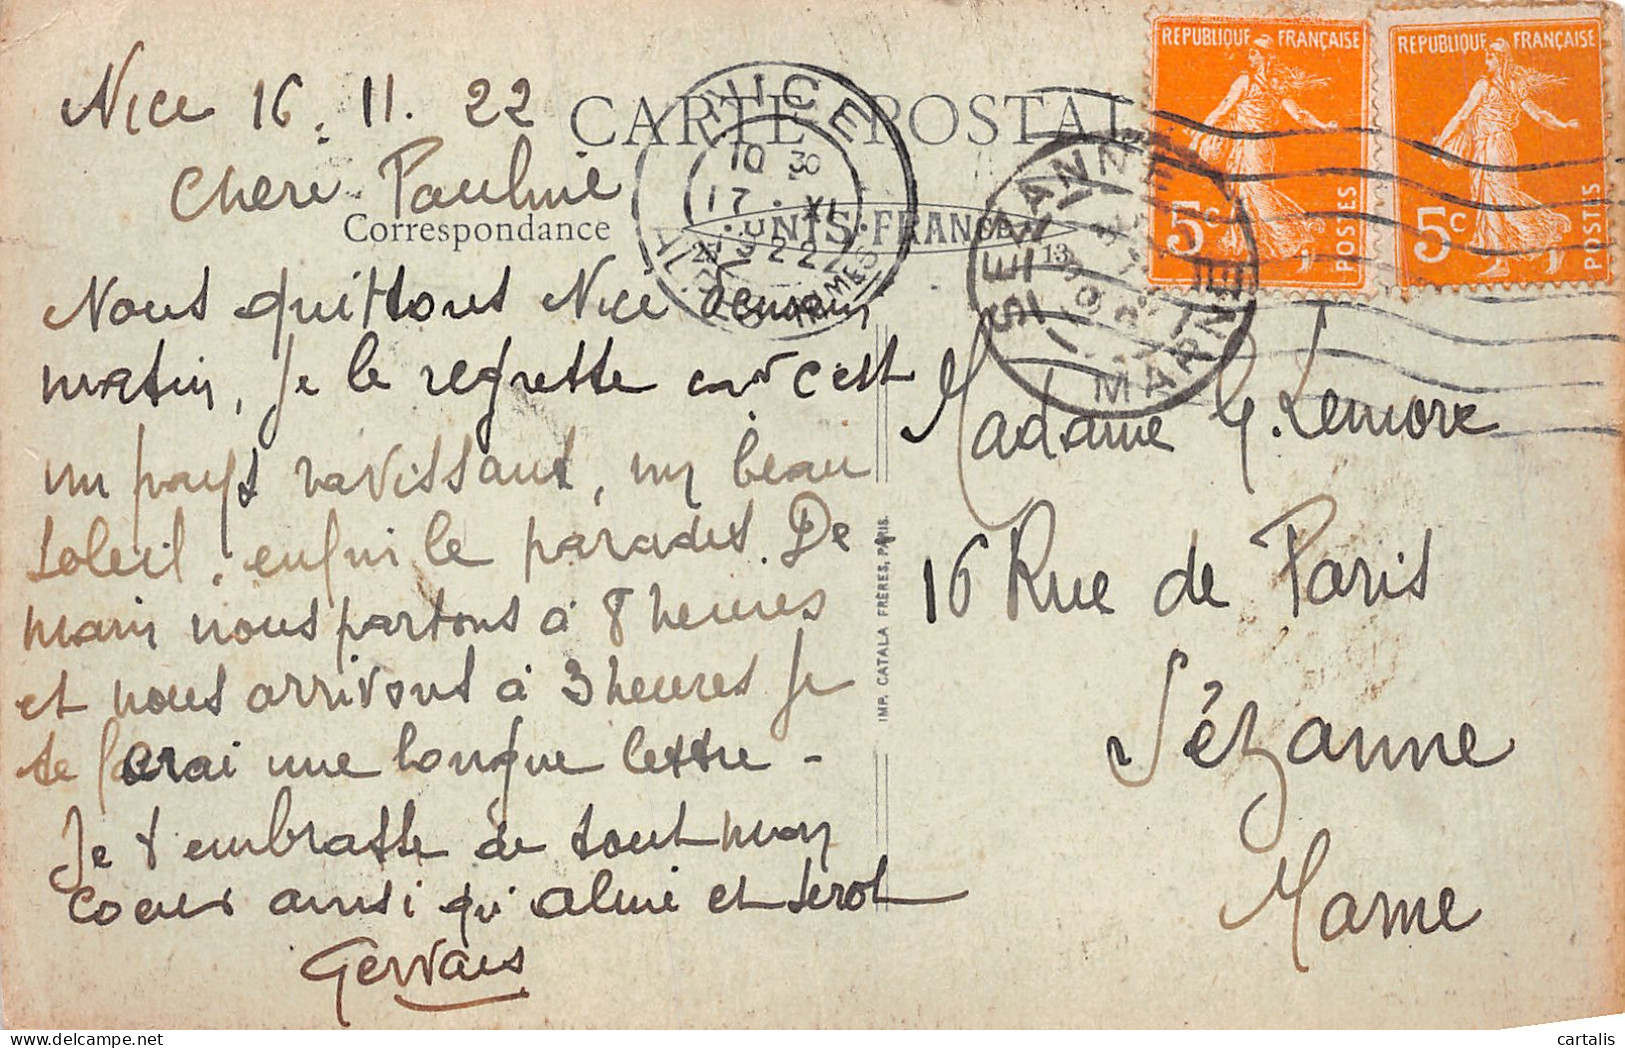 Nice 16. 11. 22
Chere Pauline
CARTE POSTALE
Correspondance
Nous quittons Nice demain
matin, je le regrette car c'est
un pays ravissant, un beau
soleil, enfin le paradis. De
main nous partons à 8 heures
et nous arrivons à 3 heures je
te ferai une longue lettre -
Je t'embrasse de tout mon
coeur ainsi qu'
Gervais
IMP. CATALA FRÈRES, PARIS.
Madame G. Lemore
16 Rue de Paris
Sézanne
Marne
REPUBLIQUE FRANÇAISE
5c
POSTES
REPUBLIQUE FRANÇAISE
5c
POSTES
NICE
10 30
17 · XI
22
SEZANNE
MARNE
cartalis